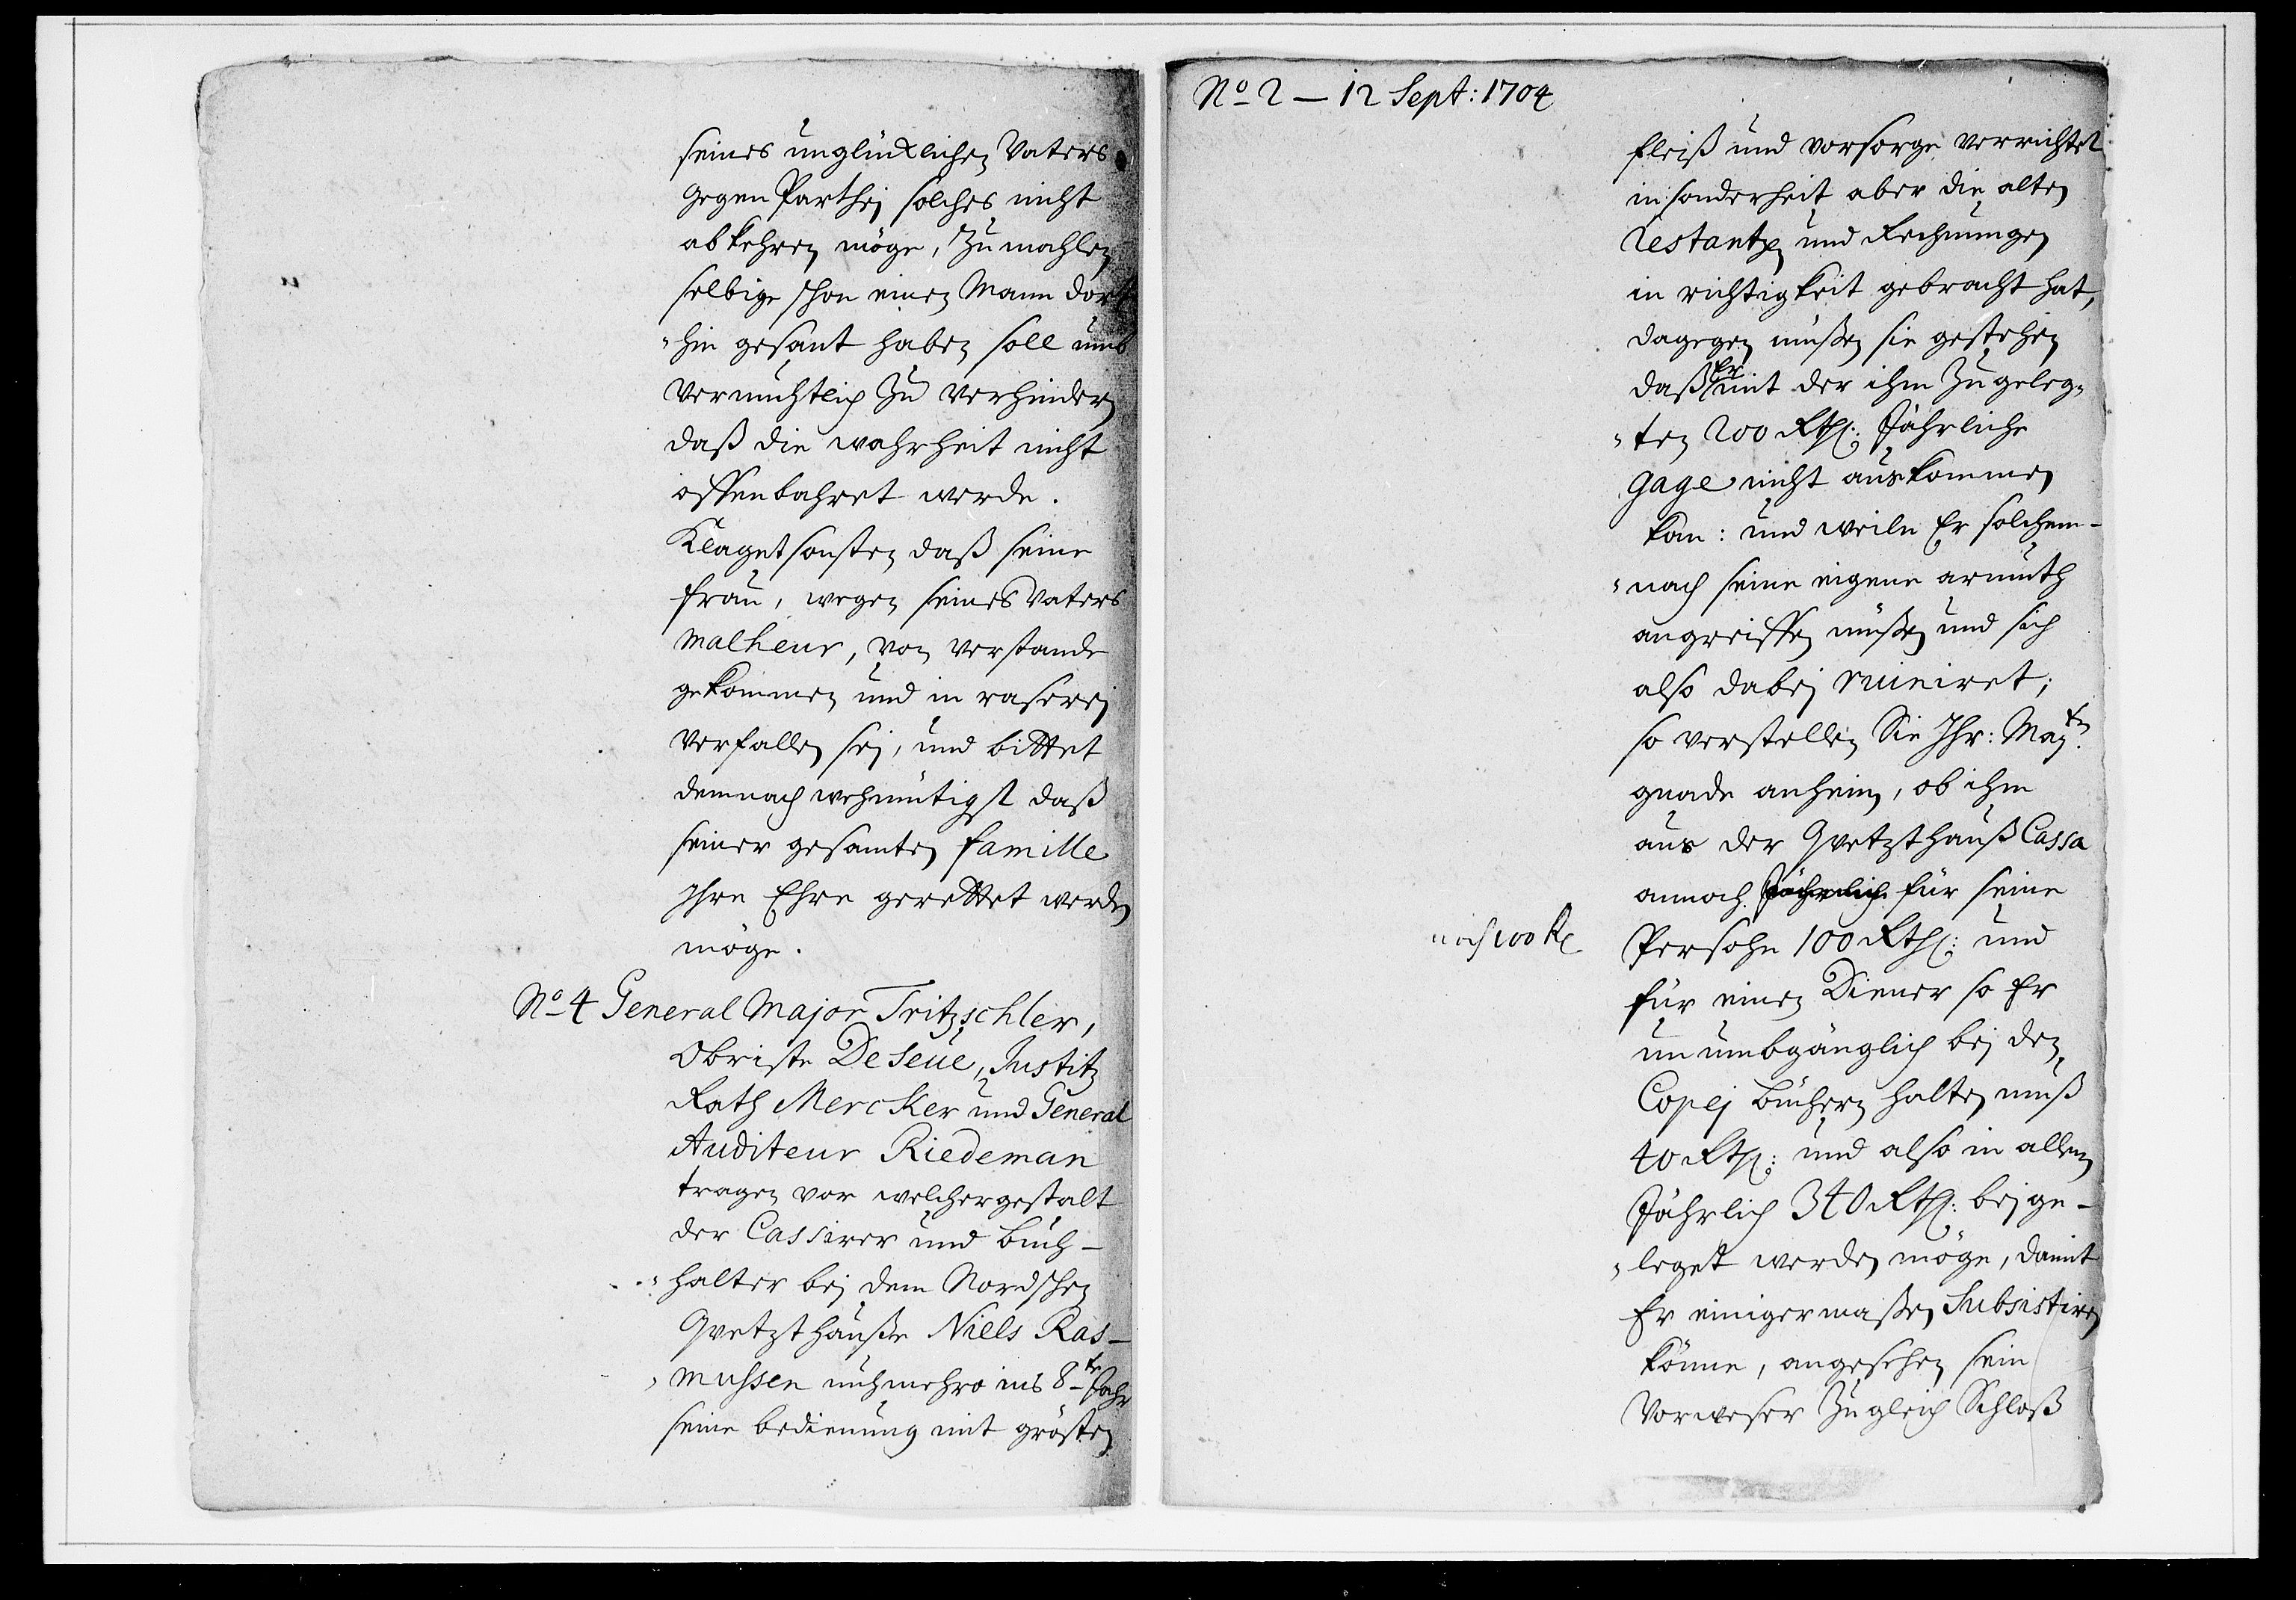 seines unglücklichen Vaters
gegen Parthej solches nicht
abkehren möge, Zumahlen
selbige schon einen Mann dort
"hin gesant haben soll umb
vermuhtlich zu verhindern
daß die wahrheit nicht
offenbahret werde.
Klaget sonsten daß seine
frau, wegen seines Vaters
malheur, von verstande
gekommen und in raserej
verfallen sej, und bittet
demnach wehmütigst daß
seiner gesamten famille
Ihre Ehre gerettet werden
möge.
No 4 General Major Tritzschler,
Obriste De Seue, Justitz
Rath Mercker und General
Auditeur Riedeman
tragen vor welchergestalt
der Cassirer und Buch-
"halter bej dem Nordschen
Qvetzthause Niels Ras-
"mussen nuhmehro ins 8te Jahr
seine bedienung mit grösten
No 2 - 12 Sept: 1704
fleiß und vorsorge verrichtet
insonderheit aber die alten
restantzen und Rechnungen
in richtigkeit gebracht hat,
dagegen müßen sie gestehen
daß Er mit der ihm Zugeleg-
"ten 200 Rthl: Jährliche
gage nicht auskommen
kan: und weiln Er solchem-
"nach seine eigene armuth
angreiffen müßen und sich
also dabej ruiniret;
so verstellen Sie Ihr: Maj:ten
gnade anheim, ob ihm
aus der Qvetzthauß Cassa
annoch Jährlich für seine
noch 100 R
Persohn 100 Rthl: und
für einen Diener so Er
unumbgänglich bej den
Copej Büchern halten muß
40 Rthl: und also in allem
Jährlich 340 Rthl: bejge-
"leget werden möge, damit
Er einigermaßen Subsistiren
könne, angesehen sein
Vorweser Zugleich Schloß